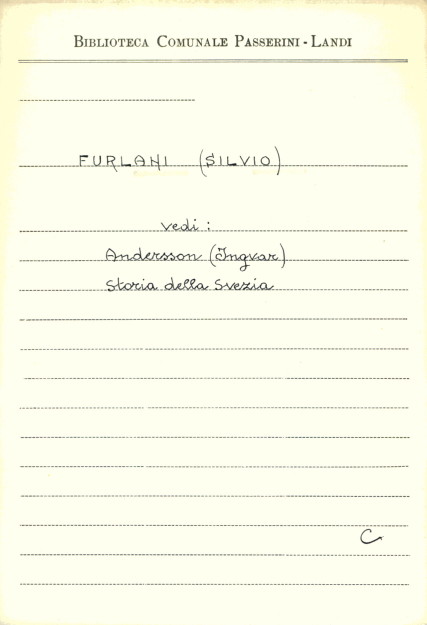 BIBLIOTECA COMUNALE PASSERINI - LANDI
FURLANI (SILVIO)
vedi :
Andersson (Ingvar)
Storia della Svezia
C